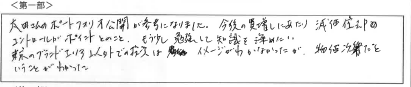 <第一部>
太田さんのポートフォリオ公開が参考になりました。今後の買増しにあたり減価償却の
コントロールがポイントとのこと、もう少し勉強して知識を深めたい。
東京のブランドエリアや人気での投資は イメージがわかなかったが、物件次第だと
いうことがわかった